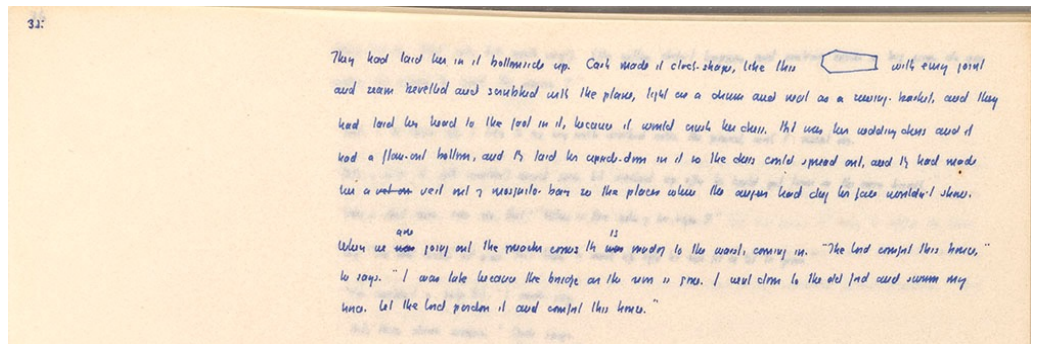 32:
They had laid her in it bottomside up. Cash made it clock-shape, like this with every joint
and seam bevelled and scrubbed with the plane, tight as a drum and neat as a sewing-basket, and they
had laid her head to the foot in it, because it would crush her dress. It was her wedding dress and it
had a flare-out bottom, and they laid her upside-down in it so the dress could spread out, and they had made
her a veil out of mosquito-bar so the places where the augers had dug her face wouldn't show.
When we are going out the preacher comes. He is muddy to the waist, coming in. "The Lord comfort this house,"
he says. "I was late because the bridge is gone. I went down to the old ford and swum my
horse. Let the Lord pardon it and comfort this house."